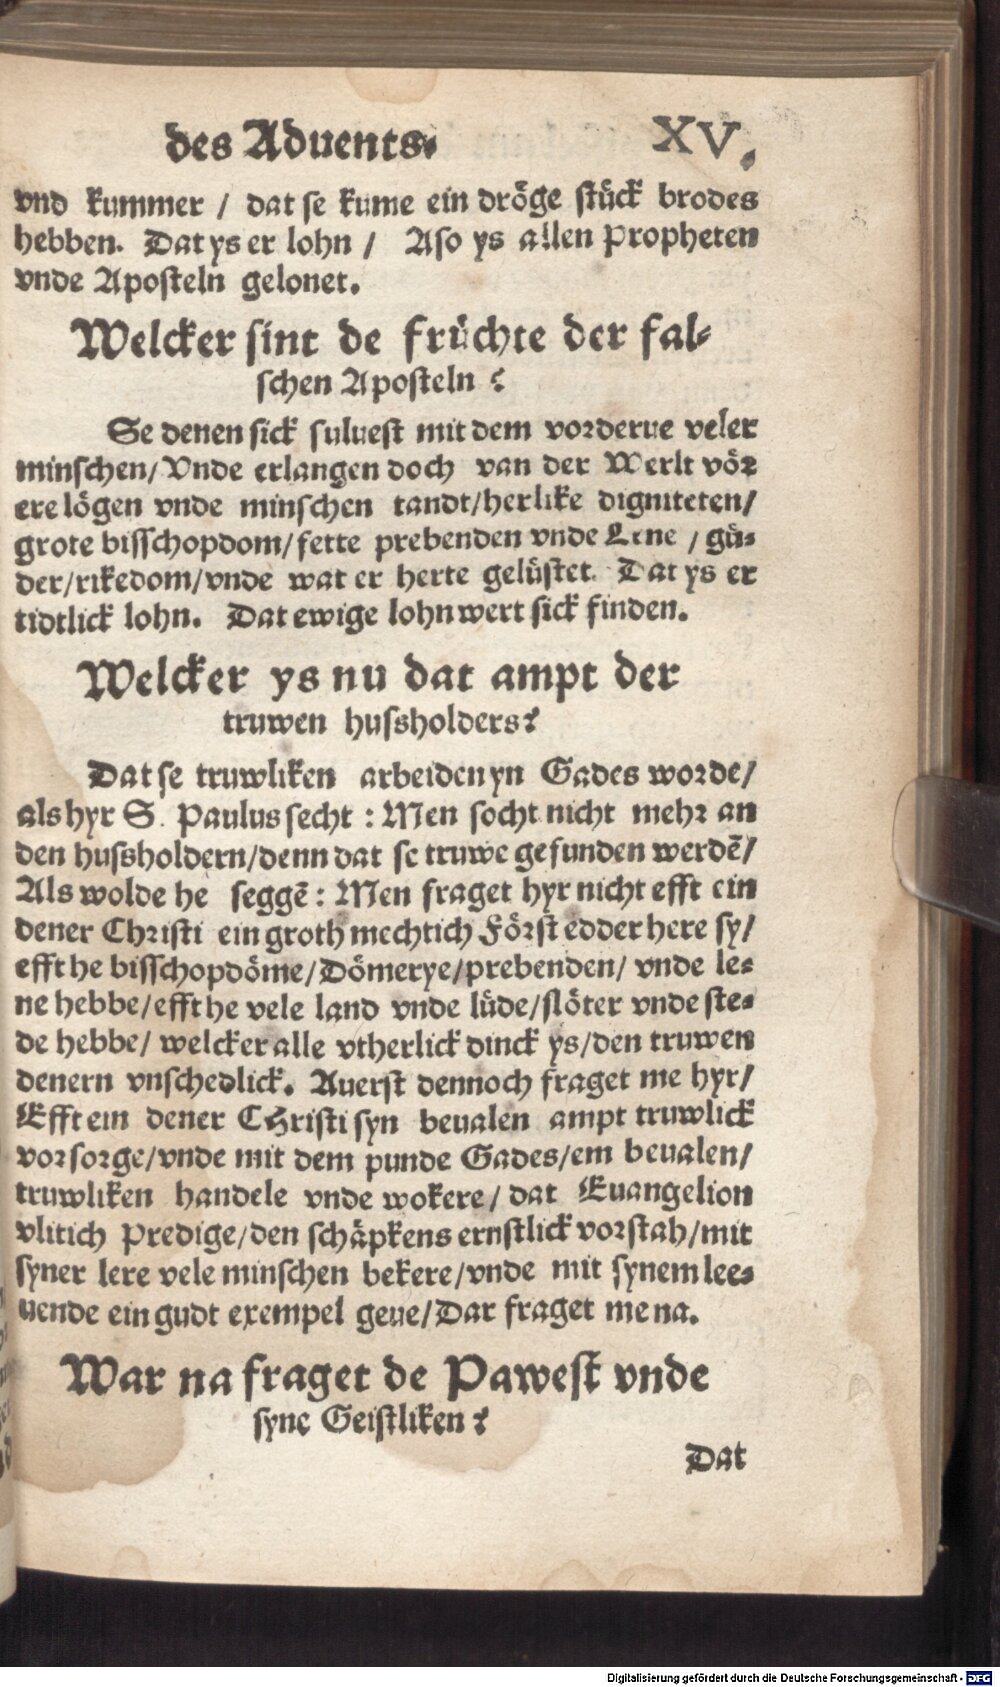 des Aduents. XV.
vnd kummer / dat se kume ein dröge stück brodes
hebben. Dat ys er lohn / Also ys allen Propheten
vnde Aposteln gelonet.
Welcker sint de früchte der fal-
schen Aposteln?
Se denen sick suluest mit dem vorderue veler
minschen/ Vnde erlangen doch van der Werlt vör
ere lögen vnde minschen tandt/herlike digniteten/
grote bisschopdom/fette prebenden vnde Lene / gü-
der/rikedom/vnde wat er herte gelüstet. Dat ys er
tidtlick lohn. Dat ewige lohn wert sick finden.
Welcker ys nu dat ampt der
truwen hussholders?
Dat se truwliken arbeiden yn Gades worde/
als hyr S. Paulus secht : Men socht nicht mehr an
den hussholdern/denn dat se truwe gefunden werdē/
Als wolde he seggē : Men fraget hyr nicht efft ein
dener Christi ein groth mechtich Förste edder here sy/
efft he bisschopdöme/Dömerye/prebenden/ vnde le-
ne hebbe/efft he vele land vnde lüde/slöter vnde ste-
de hebbe/ welcker alle vtherlick dinck ys/den truwen
denern vnschedlick. Auerst dennoch fraget me hyr/
Efft ein dener CHristi syn beualen ampt truwlick
vorsorge/vnde mit dem punde Gades/em beualen/
truwliken handele vnde wokere/ dat Euangelion
vlitich Predige/den schäpkens ernstlick vorstah/mit
syner lere vele minschen bekere/vnde mit synem lee-
uende ein gudt exempel geue/Dar fraget me na.
War na fraget de Pawest vnde
syne Geistliken?
Dat
Digitalisierung gefördert durch die Deutsche Forschungsgemeinschaft - DFG